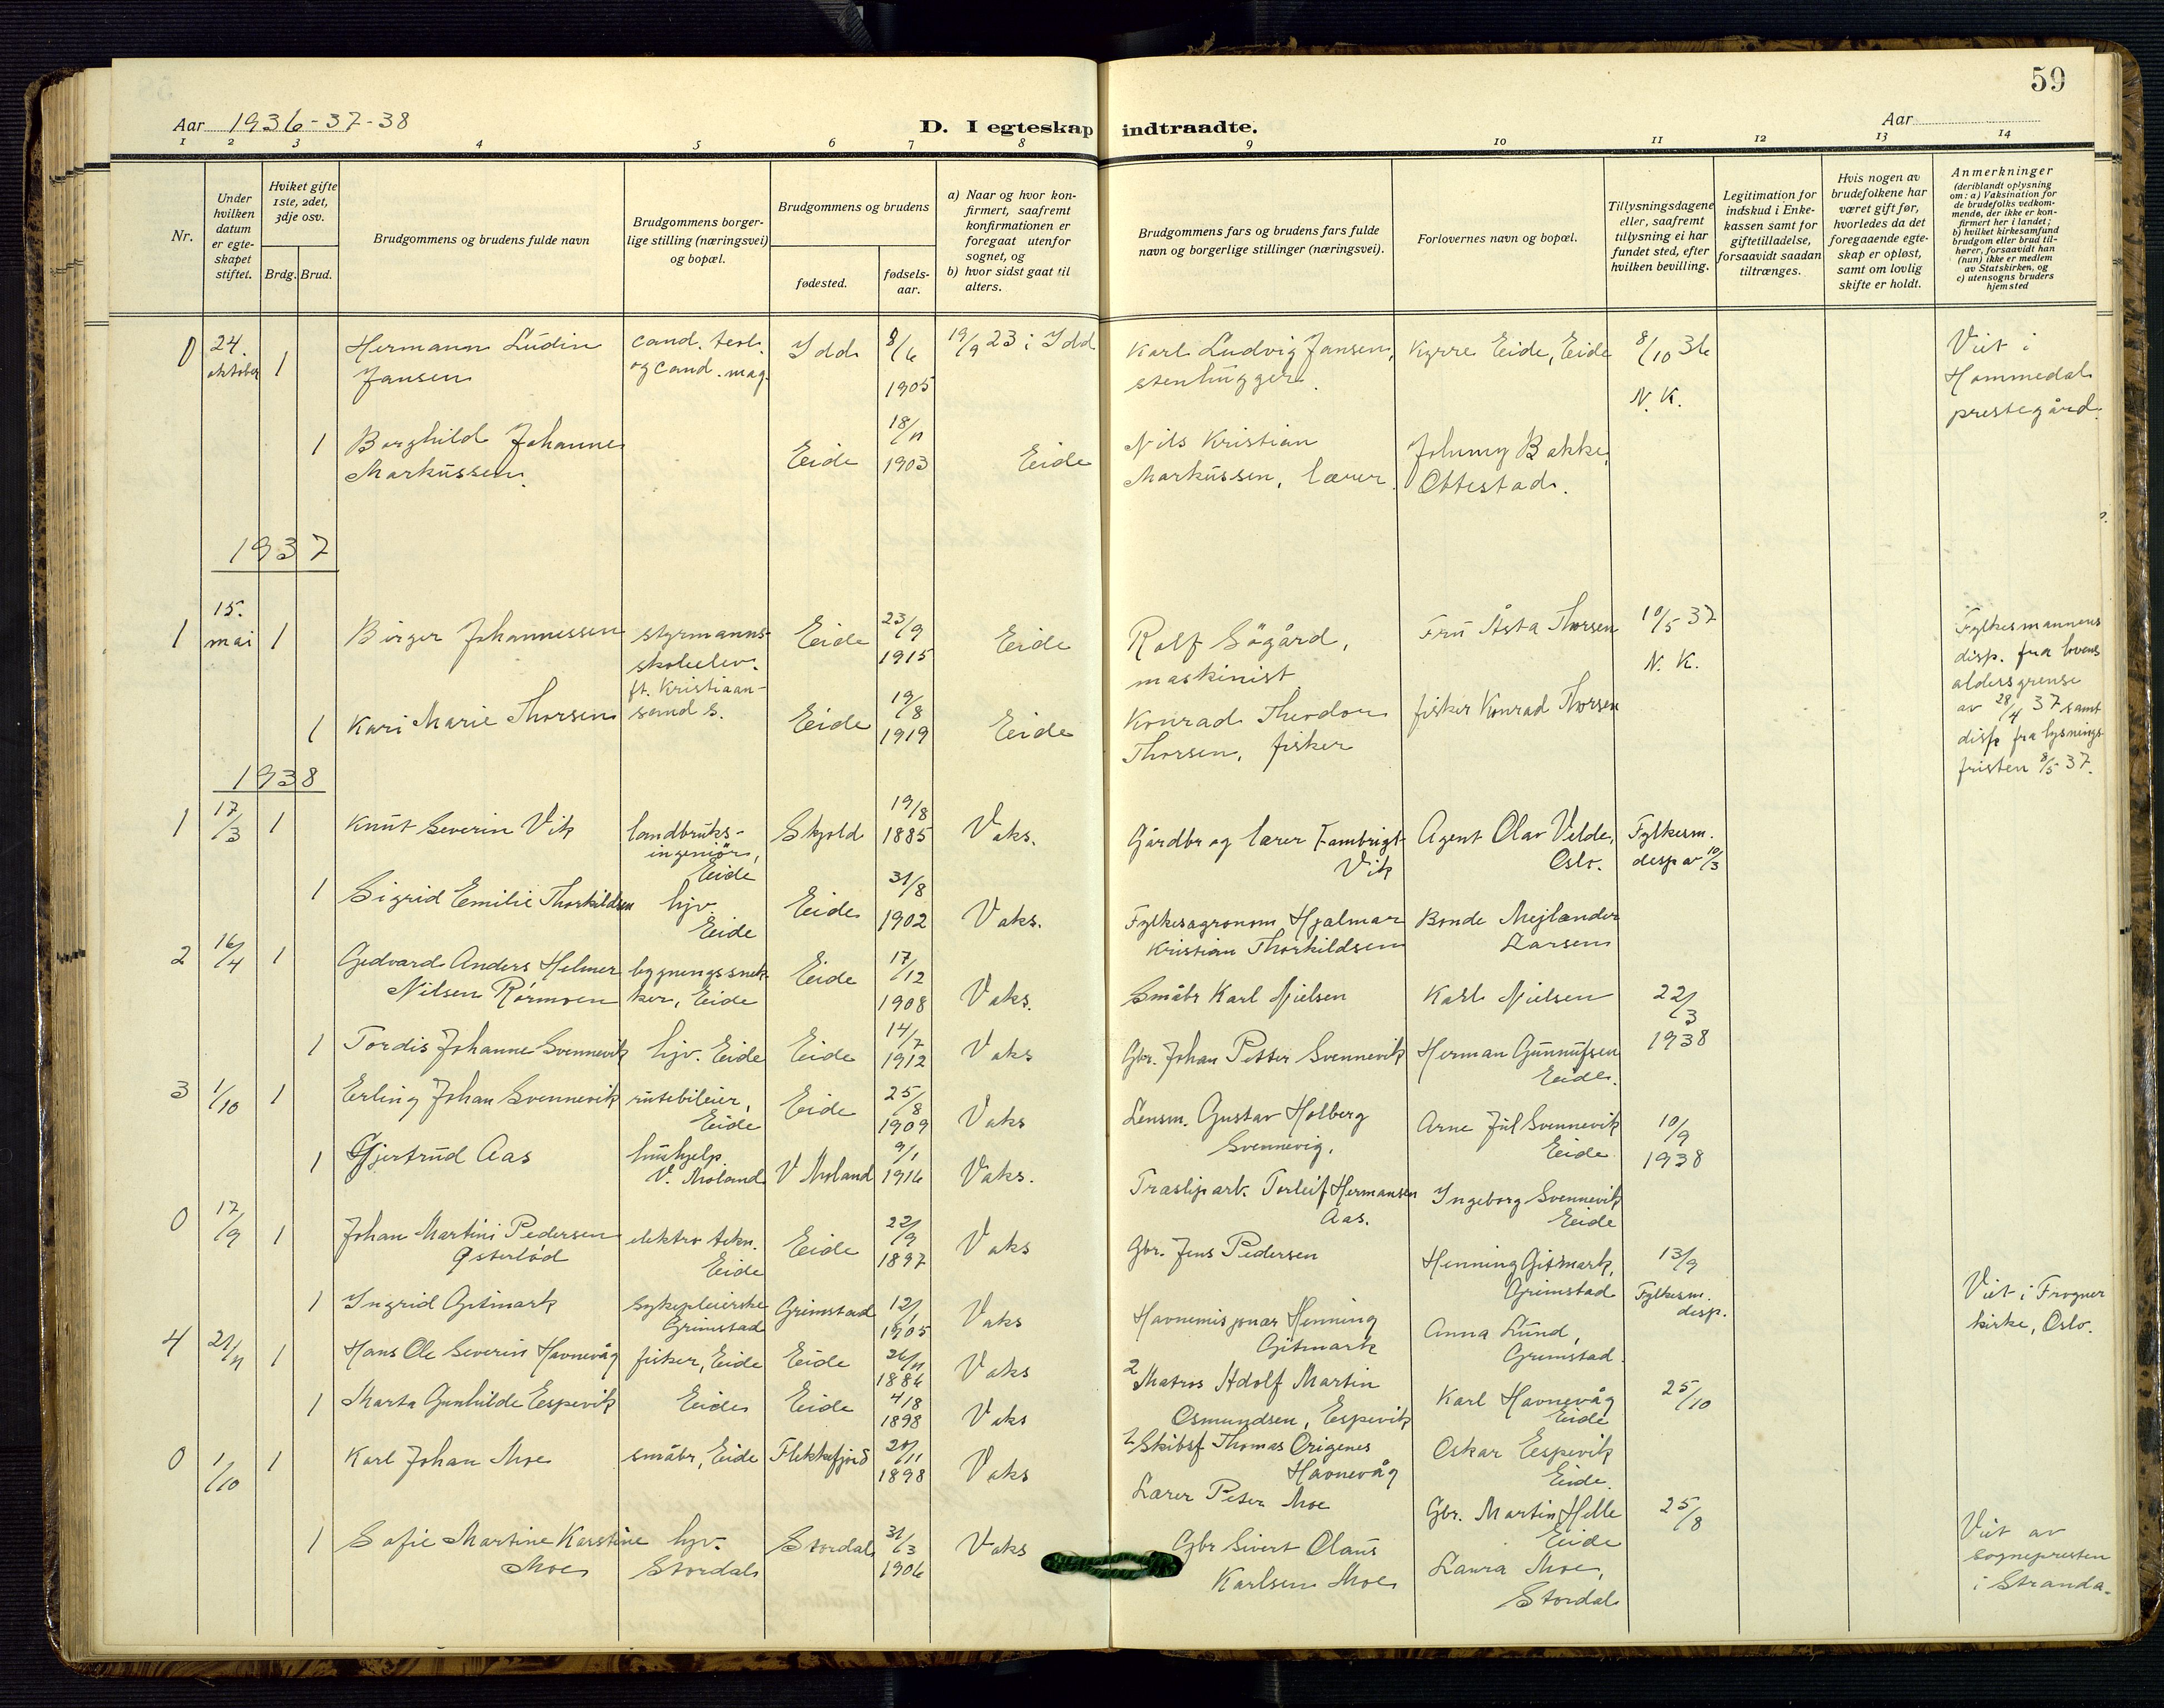 59
Aar 1936-37-38
D. I egteskap indtraadte.
Aar
1 2 3 4 5 6 7 8 9 10 11 12 13 14
Nr.
Under hvilken datum er egteskapet stiftet.
Hviket gifte 1ste, 2det, 3dje osv.
Brdg. Brud.
Brudgommens og brudens fulde navn
Brudgommens borgerlige stilling (næringsvei) og bopæl.
Brudgommens og brudens
fødested.
fødselsaar.
a) Naar og hvor konfirmert, saafremt konfirmationen er foregaat utenfor sognet, og
b) hvor sidst gaat til alters.
Brudgommens fars og brudens fars fulde navn og borgerlige stillinger (næringsvei).
Forlovernes navn og bopæl.
Tillysningsdagene eller, saafremt tillysning ei har fundet sted, efter hvilken bevilling.
Legitimation for indskud i Enkekassen samt for giftetilladelse, forsaavidt saadan tiltrænges.
Hvis nogen av brudefolkene har været gift før, hvorledes da det foregaaende egteskap er opløst, samt om lovlig skifte er holdt.
Anmerkninger
(deriblandt oplysning om: a) Vaksination for de brudefolks vedkommende, der ikke er konfirmert her i landet; b) hvilket kirkesamfund brudgom eller brud tilhører, forsaavidt han (hun) ikke er medlem av Statskirken, og c) utensogns bruders hjemsted
0 24. oktober 1 Hermann Ludin Jansen cand. teol. og cand. mag. Idd 8/6 1905 19/9 23 i Idd Karl Ludvig Jansen, stenhugger. Kyrre Eide, Eide 8/10 36 N. K. Viet i Hommedal prestegård.
1 Borghild Johanne Markussen. Eide 18/11 1903 Eide Nils Kristian Markussen, lærer. Johnny Bakke, Ottestad.
1937
1 15. mai 1 Birger Johannessen styrmannsskoleelev. ft. Kristiansand S. Eide 23/9 1915 Eide Rolf Søgård, maskinist Fru Åsta Thorsen 10/5 37 N. K. Fylkesmannens disp. fra lovens aldersgrense av 28/4 37 samt disp fra lysningsfristen 8/5 37.
1 Kari Marie Thorsen Eide 19/8 1919 Eide Konrad Theodor Thorsen, fisker fisker Konrad Thorsen
1938
1 17/3 1 Knut Severin Vik landbruksingeniør, Eide Skjold 19/8 1885 Vaks. Gårdbr og lærer Vik Agent Olav Velde, Oslo. Fylkesm. desp av 10/3
1 Sigrid Emilie Thorkildsen hjv. Eide Eide 31/8 1902 Vaks. Fylkesagronom Hjalmar Kristian Thorkildsen Bonde Mejlænder Larsen
2 16/4 1 Gedvard Anders Helmer Nilsen Rørmoen bygningssnekker, Eide Eide 17/12 1908 Vaks. Småbr Karl Nielsen Karl Nielsen 22/3 1938
1 Tordis Johanne Svennevik hjv. Eide Eide 14/7 1912 Vaks Gbr. Johan Petter Svennevik Herman Gunnufsen Eide.
3 1/10 1 Erling Johan Svennevik rutebileier, Eide Eide 25/8 1909 Vaks Lensm. Gustav Holberg Svennevig. Arne Jul Svennevik Eide 10/9 1938
1 Gjertrud Aas hushjelp V. Moland V Moland 9/1 1916 Vaks. Traslipark. Torleif Hermansen Aas. Ingeborg Svennevik Eide
0 17/9 1 Johan Martini Pedersen Østerlød elektro tekn. Eide Eide 22/9 1897 Vaks Gbr. Jens Pedersen Henning Gitmark, Grimstad 13/9 Fylkesm. desp. Viet i Frogner kirke, Oslo.
1 Ingrid Gitmark Sykepleierske Grimstad Grimstad 12/1 1905 Vaks Havnemisjonær Henning Gitmark Anna Lund, Grimstad.
4 21/11 1 Hans Ole Severin Havnevåg fisker, Eide Eide 26/11 1886 Vaks 2 Matros Adolf Martin Osmundsen, Espevik Karl Havnevåg Eide 25/10
1 Marta Gunhilde Espevik Eide Eide 4/8 1898 Vaks 1 Skibsf Thomas Origenes Havnevåg Oskar Espevik Eide.
0 1/10 1 Karl Johan Moe småbr, Eide Flekkefjord 20/11 1898 Vaks Lærer Peter Moe Gbr. Martin Helle Eide 25/8 Viet av sognepresten i Stranda.
1 Sofie Martine Karstine Moe hjv. Stordal Stordal 31/3 1906 Vaks Gbr Sivert Olaus Karlsen Moe Laura Moe, Stordal